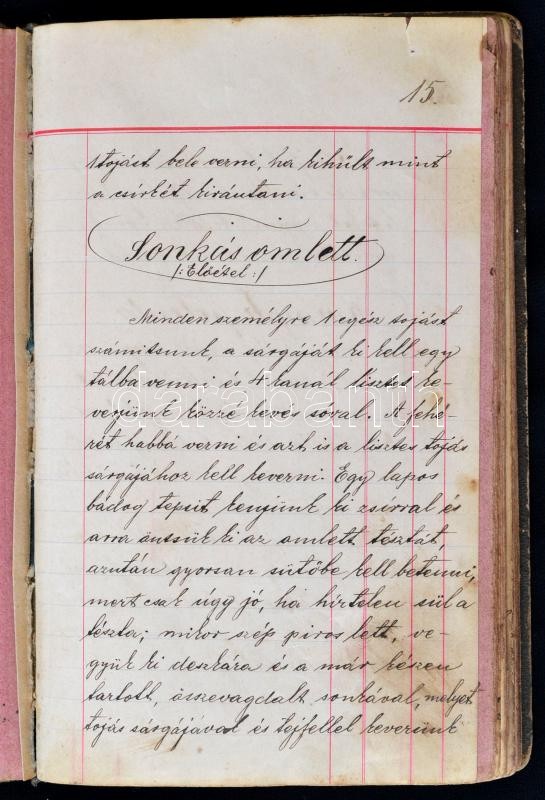 15.
1 tojást bele verni, ha kihült mint
a csirkét kirántani.
Sonkás omlett.
/: Előétel :/
Minden személyre 1 egész tojást
számitsunk, a sárgáját ki kell egy
tálba venni és 4 kanál lisztet ke-
verjünk közzé kevés soval. A fehé-
rét habbá verni és azt is a lisztes tojás
sárgájához kell keverni. Egy lapos
bádog tepsit kenjünk ki zsirral és
arra öntsük ki az omlett tésztát,
azután gyorsan sütőbe kell betenni,
mert csak úgy jó, ha hirtelen sül a
tészta; mikor szép piros lett, ve-
gyük ki deszkára és a már készen
tartott, összevagdalt sonkával, melyet
tojás sárgájával és tejfellel keverünk
darabanth